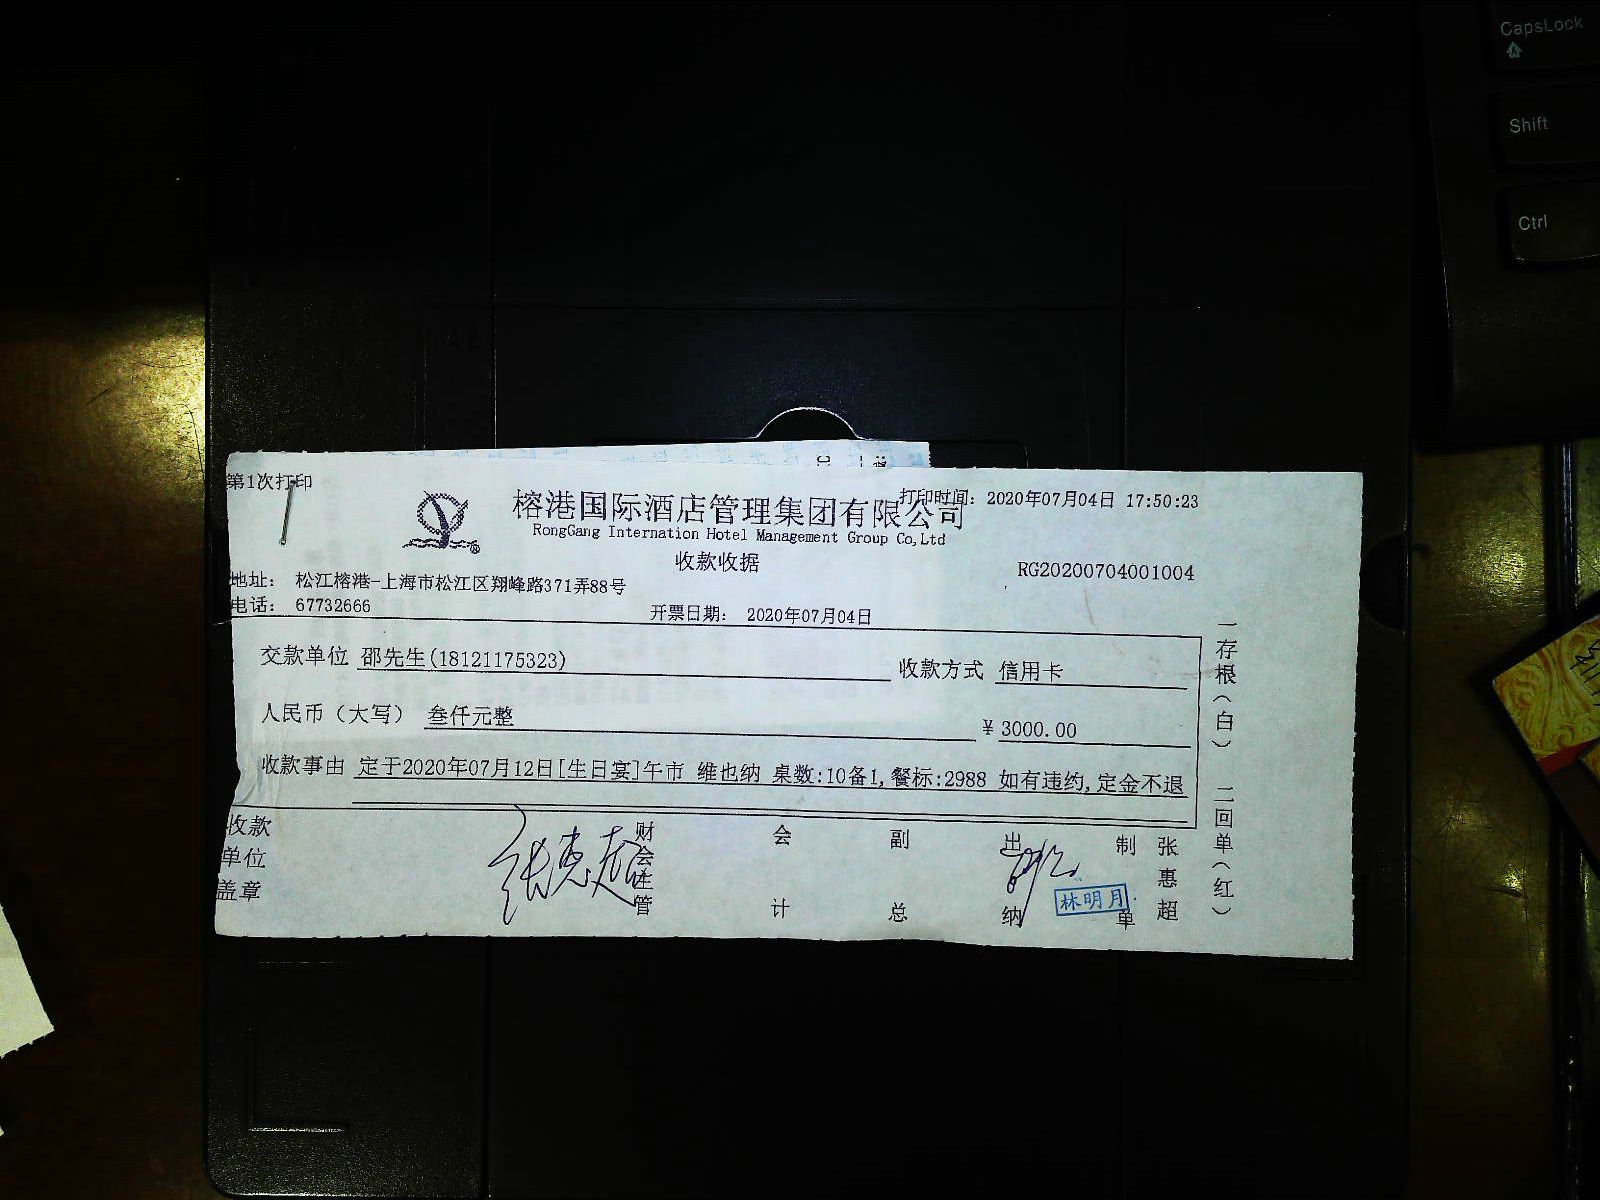 CapsLock
Shift
Ctrl
第1次打印
打印时间: 2020年07月04日 17:50:23
榕港国际酒店管理集团有限公司
RongGang Internation Hotel Management Group Co,Ltd
收款收据
RG20200704001004
地址: 松江榕港-上海市松江区翔峰路371弄88号
电话: 67732666
开票日期: 2020年07月04日
交款单位 邵先生(18121175323) 收款方式 信用卡
人民币（大写） 叁仟元整 ¥3000.00
收款事由 定于2020年07月12日[生日宴]午市 维也纳 桌数:10备1,餐标:2988 如有违约,定金不退
收款单位盖章
张惠超
财会主管
会计
副总
出纳
林明月
制单
张惠超
一存根（白） 二回单（红）